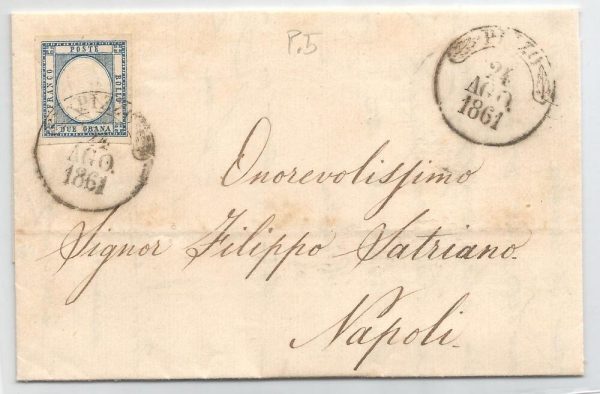 P.5
POSTE
FRANCO
BOLLO
DUE GRANA
PIZZO
24
AGO.
1861
PIZZO
24
AGO.
1861
Onorevolissimo
Signor Filippo Satriano
Napoli.